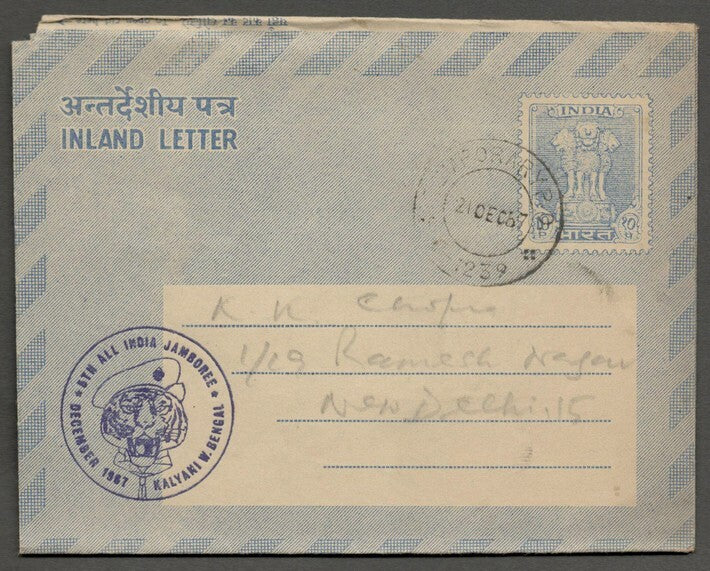 अन्तर्देशीय पत्र
INLAND LETTER
INDIA
भारत
21 DEC 67
1239
K. K. Chopra
1/29 Ramesh Nagar
New Delhi. 15
★ 5TH ALL INDIA JAMBOREE ★
DECEMBER 1967 KALYANI W. BENGAL